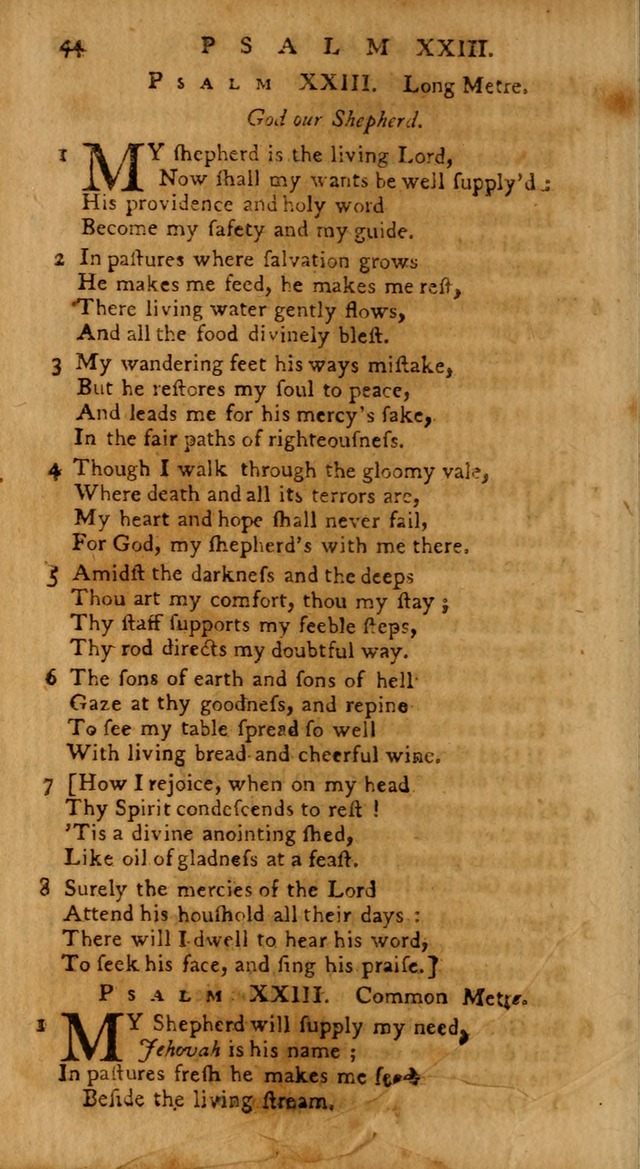 44 PSALM XXIII.
PSALM XXIII. Long Metre.
God our Shepherd.
1 MY ſhepherd is the living Lord,
Now ſhall my wants be well ſupply'd:
His providence and holy word
Become my ſafety and my guide.
2 In paſtures where ſalvation grows
He makes me feed, he makes me reſt,
There living water gently flows,
And all the food divinely bleſt.
3 My wandering feet his ways miſtake,
But he reſtores my ſoul to peace,
And leads me for his mercy's ſake,
In the fair paths of righteouſneſs.
4 Though I walk through the gloomy vale,
Where death and all its terrors are,
My heart and hope ſhall never fail,
For God, my ſhepherd's with me there.
5 Amidſt the darkneſs and the deeps
Thou art my comfort, thou my ſtay ;
Thy ſtaff ſupports my feeble ſteps,
Thy rod directs my doubtful way.
6 The ſons of earth and ſons of hell
Gaze at thy goodneſs, and repine
To ſee my table ſpread ſo well
With living bread and cheerful wine.
7 [How I rejoice, when on my head
Thy Spirit condeſcends to reſt !
'Tis a divine anointing ſhed,
Like oil of gladneſs at a feaſt.
8 Surely the mercies of the Lord
Attend his houſhold all their days :
There will I dwell to hear his word,
To ſeek his face, and ſing his praiſe.]
PSALM XXIII. Common Metre.
1 MY Shepherd will ſupply my need,
Jehovah is his name ;
In paſtures freſh he makes me
Beſide the living ſtream.